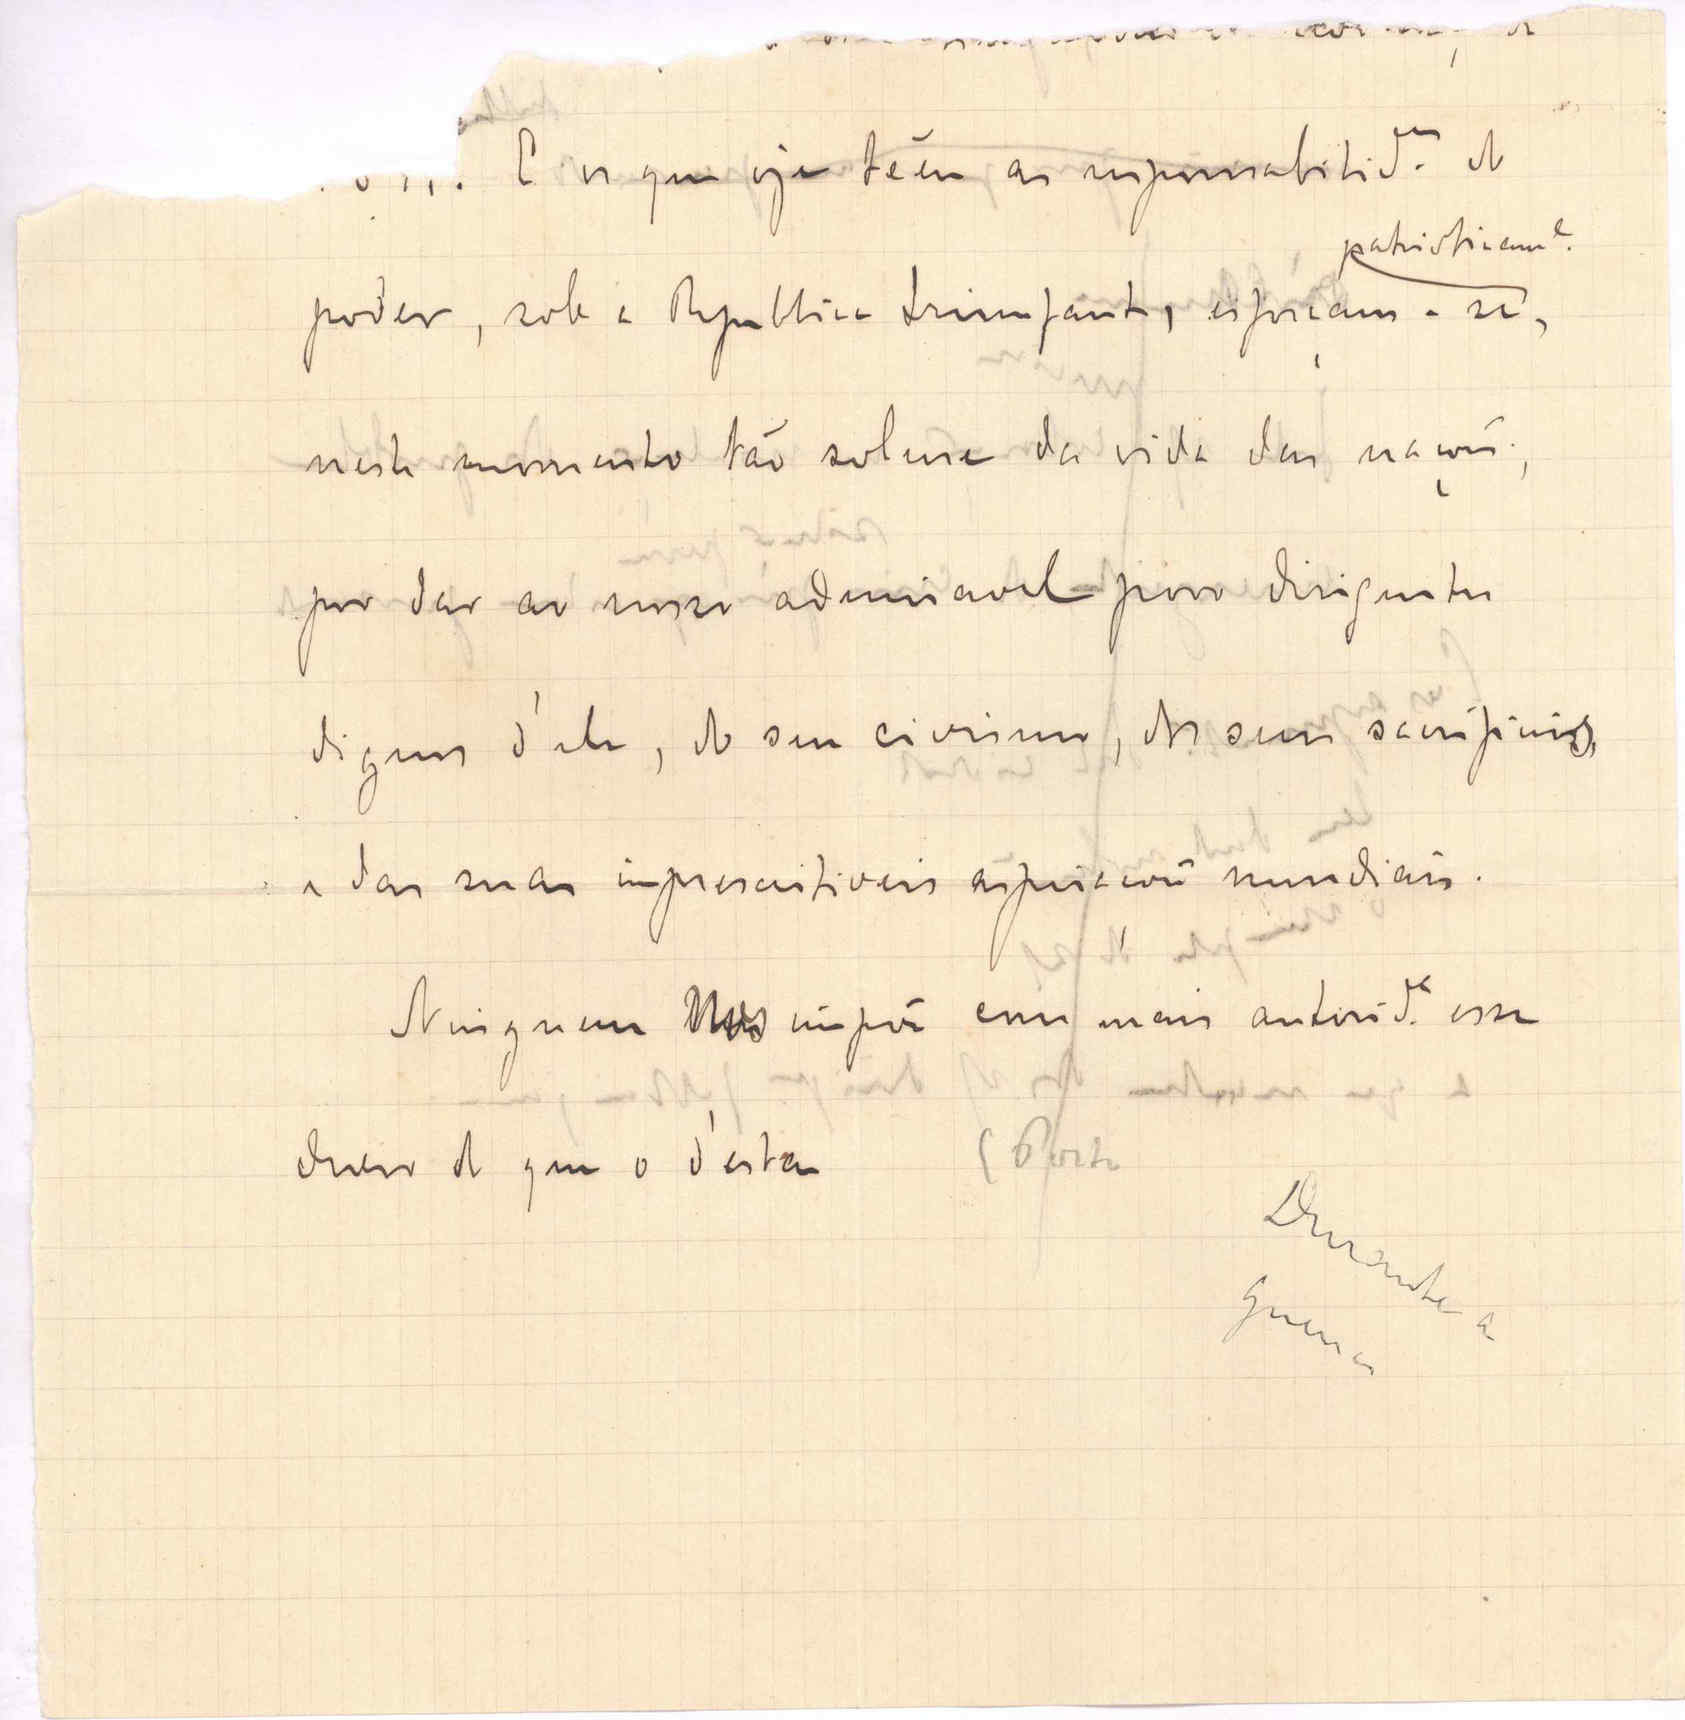 E os que oje têem as responsabilid.es do
patrioticam.e
poder, sob a Republica triumfante, esforçam-se,
neste momento tão solene da vida das nações,
por dar ao nosso admiravel povo dirigentes
dignos d'ele, do seu civismo, dos seus sacrificios,
e das suas imprescritiveis aspirações mundiais.
Ninguem nos impõe com mais autorid.e esse
dever do que o d'esta
(Porto
Durante a
guerra